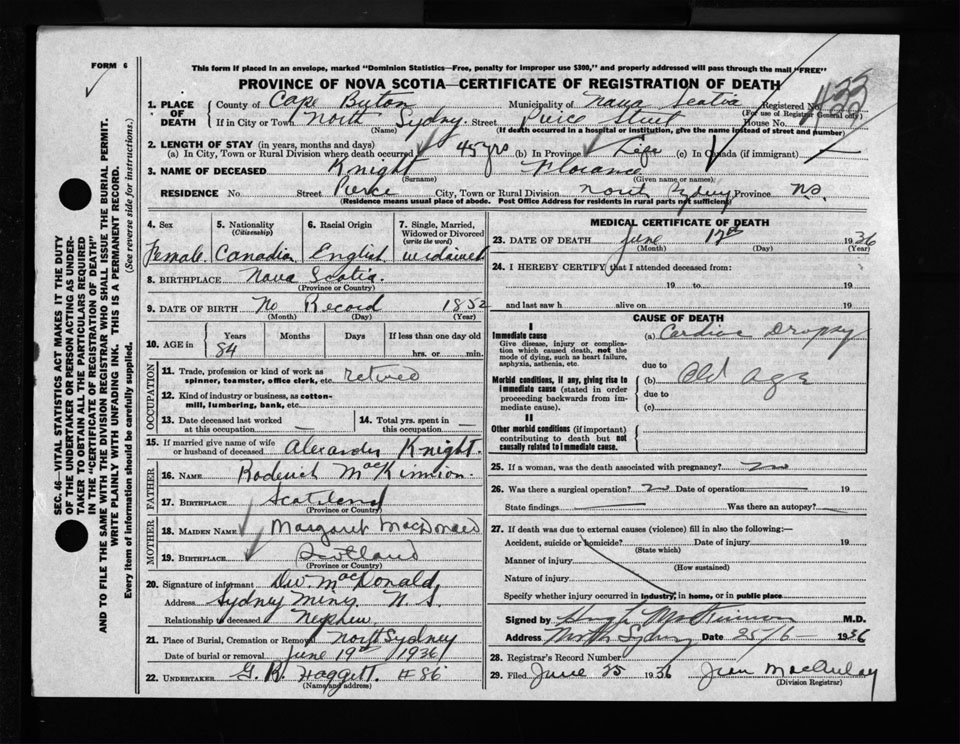 FORM 6
This form if placed in an envelope, marked "Dominion Statistics—Free, penalty for improper use $300," and properly addressed will pass through the mail "FREE"
PROVINCE OF NOVA SCOTIA—CERTIFICATE OF REGISTRATION OF DEATH
1. PLACE OF DEATH
County of Cape Breton Municipality of Nova Scotia Registered No.
(For use of Registrar General only)
If in City or Town North Sydney Street Pierce Street House No.
(Name) (If death occurred in a hospital or institution, give the name instead of street and number)
2. LENGTH OF STAY (in years, months and days)
(a) In City, Town or Rural Division where death occurred 45 yrs (b) In Province Life (c) In Canada (if immigrant)
3. NAME OF DECEASED Knight Florance
(Surname) (Given name or names)
RESIDENCE No. Street Pierce City, Town or Rural Division North Sydney Province N.S.
(Residence means usual place of abode. Post Office Address for residents in rural parts not sufficient)
4. Sex
Female
5. Nationality
(Citizenship)
Canadian
6. Racial Origin
English
7. Single, Married, Widowed or Divorced
(write the word)
widowed
8. BIRTHPLACE Nova Scotia
(Province or County)
9. DATE OF BIRTH No Record 1852
(Month) (Day) (Year)
10. AGE in Years Months Days If less than one day old
84 hrs. or min.
OCCUPATION
11. Trade, profession or kind of work as spinner, teamster, office clerk, etc. retired
12. Kind of industry or business, as cotton-mill, lumbering, bank, etc.
13. Date deceased last worked at this occupation —
14. Total yrs. spent in this occupation. —
15. If married give name of wife or husband of deceased Alexander Knight
FATHER
16. NAME Roderick MacKinnon
17. BIRTHPLACE Scotland
(Province or County)
MOTHER
18. MAIDEN NAME Margaret MacDonald
19. BIRTHPLACE Scotland
(Province or County)
20. Signature of informant MacDonald
Address Sydney Mines N.S.
Relationship to deceased Nephew
21. Place of Burial, Cremation or Removal North Sydney
Date of burial or removal June 19th 1936
22. UNDERTAKER G. R. Haggett #86
(Name and address)
MEDICAL CERTIFICATE OF DEATH
23. DATE OF DEATH June 17th 1936
(Month) (Day) (Year)
24. I HEREBY CERTIFY that I attended deceased from:
19 to 19
and last saw h alive on 19
CAUSE OF DEATH
I
Immediate cause (a) Cardiac Dropsy
Give disease, injury or complication which caused death, not the mode of dying, such as heart failure, asphyxia, asthenia, etc.
due to
Morbid conditions, if any, giving rise to immediate cause (stated in order proceeding backwards from immediate cause).
(b) Old age
due to
(c)
II
Other morbid conditions (if important) contributing to death but not causally related to immediate cause.
25. If a woman, was the death associated with pregnancy? no
26. Was there a surgical operation? no Date of operation 19
State findings Was there an autopsy?
27. If death was due to external causes (violence) fill in also the following:—
Accident, suicide or homicide? Date of injury 19
(State which)
Manner of injury
(How sustained)
Nature of injury
Specify whether injury occurred in industry, in home, or in public place
Signed by Hugh McKinnon M.D.
Address North Sydney Date 25/6 - 1936
28. Registrar's Record Number
29. Filed June 25 1936 MacAulay
(Division Registrar)
SEC. 46—VITAL STATISTICS ACT MAKES IT THE DUTY
OF THE UNDERTAKER OR PERSON ACTING AS UNDER-
TAKER TO OBTAIN ALL THE PARTICULARS REQUIRED
IN THE "CERTIFICATE OF REGISTRATION OF DEATH"
AND TO FILE THE SAME WITH THE DIVISION REGISTRAR WHO SHALL ISSUE THE BURIAL PERMIT.
WRITE PLAINLY WITH UNFADING INK. THIS IS A PERMANENT RECORD.
Every item of information should be carefully supplied. (See reverse side for instructions.)